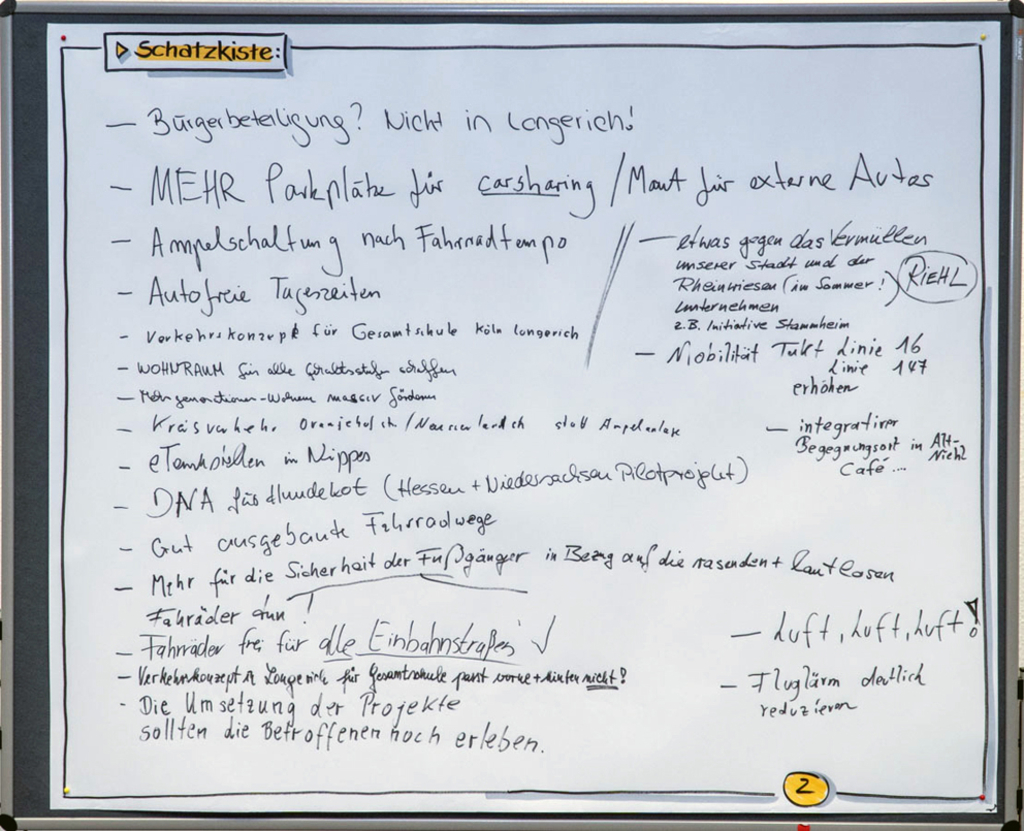 Schatzkiste:
– Bürgerbeteiligung? Nicht in Longerich!
– MEHR Parkplätze für carsharing / Maut für externe Autos
– Ampelschaltung nach Fahrradtempo
– Autofreie Tageszeiten
– Verkehrskonzept für Gesamtschule Köln Longerich
– WOHNRAUM für alle Gehaltsstufen schaffen
– Mehrgenerationen-Wohnen massiv fördern
– Kreisverkehr statt Ampelanlage
– eTankstellen in Nippes
– DNA für Hundekot (Hessen + Niedersachsen Pilotprojekt)
– Gut ausgebaute Fahrradwege
– Mehr für die Sicherheit der Fußgänger in Bezug auf die rasenden + lautlosen
Fahräder tun!
– Fahrräder frei für alle Einbahnstraßen ✓
– Verkehrskonzept Longerich für Gesamtschule passt vorne + hinten nicht?
- Die Umsetzung der Projekte
sollten die Betroffenen noch erleben.
– etwas gegen das Vermüllen
unserer Stadt und der
Rheinwiesen (im Sommer!) RIEHL
unternehmen
z.B. Initiative Stammheim
– Mobilität Takt Linie 16
Linie 147
erhöhen
– integrativer
Begegnungsort in Alt-
Niehl
Café ...
– Luft, Luft, Luft!
– Fluglärm deutlich
reduzieren
2